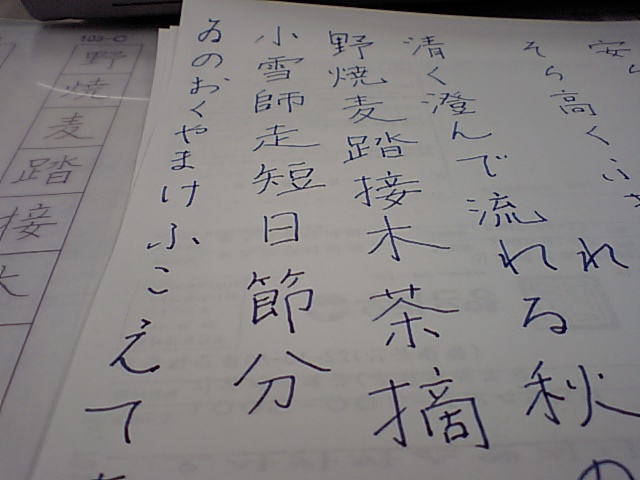 そら高く
れ
清く澄んで流れる秋の
野焼麦踏接木茶摘
小雪師走短日節分
ゐのおくやまけふこえて
103-C
野焼麦踏接木